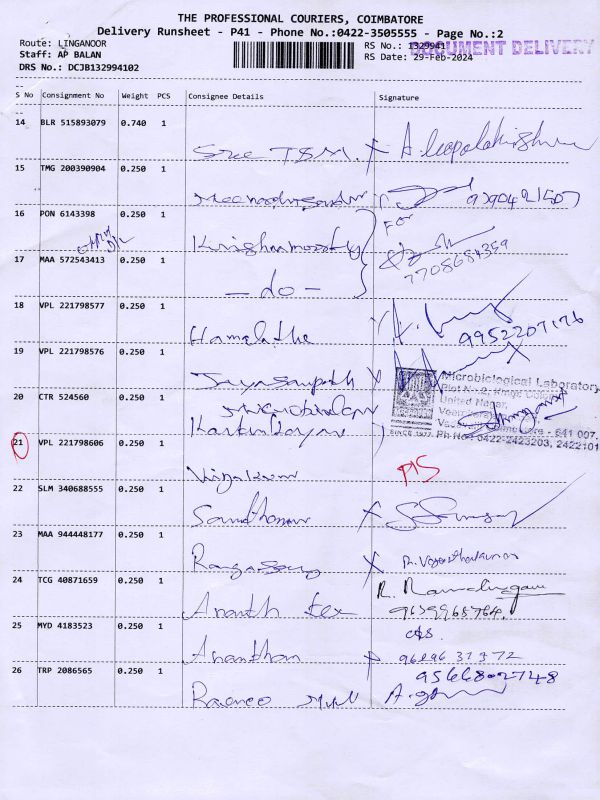 THE PROFESSIONAL COURIERS, COIMBATORE
Delivery Runsheet - P41 - Phone No.:0422-3505555 - Page No.:2
Route: LINGANOOR
RS No.: 1329941
DOCUMENT DELIVERY
Staff: AP BALAN
RS Date: 29-Feb-2024
DRS No.: DCJB132994102
S No Consignment No Weight PCS Consignee Details Signature
14 BLR 515893079 0.740 1
Sree T.B.M.
15 TMG 200390904 0.250 1
16 PON 6143398 0.250 1
For
Krishnamoorthy
7708684359
17 MAA 572543413 0.250 1
- do -
18 VPL 221798577 0.250 1
Hamalatha
9952207176
19 VPL 221798576 0.250 1
Microbiological Laboratory
United Nagar,
20 CTR 524560 0.250 1
SINCE 1977
641 007.
Ph No: 0422-2423203, 2422101
21 VPL 221798606 0.250 1
Vijakumar
22 SLM 340688555 0.250 1
23 MAA 944448177 0.250 1
24 TCG 40871659 0.250 1
R. Ramalingam
Ananth Tex
25 MYD 4183523 0.250 1
Ananthan
9629637372
26 TRP 2086565 0.250 1
9566802748